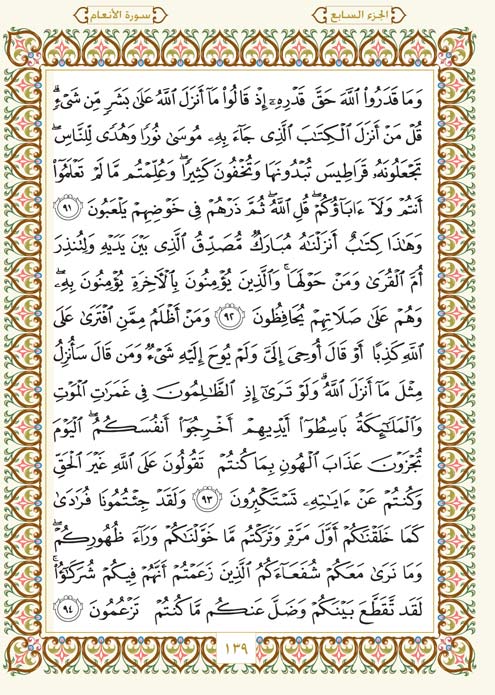 الجزء السابع
سورة الأنعام
وَمَا قَدَرُوا۟ ٱللَّهَ حَقَّ قَدْرِهِۦٓ إِذْ قَالُوا۟ مَآ أَنزَلَ ٱللَّهُ عَلَىٰ بَشَرٍۢ مِّن شَىْءٍۢ ۗ
قُلْ مَنْ أَنزَلَ ٱلْكِتَـٰبَ ٱلَّذِى جَآءَ بِهِۦ مُوسَىٰ نُورًۭا وَهُدًۭى لِّلنَّاسِ ۖ
تَجْعَلُونَهُۥ قَرَاطِيسَ تُبْدُونَهَا وَتُخْفُونَ كَثِيرًۭا ۖ وَعُلِّمْتُم مَّا لَمْ تَعْلَمُوٓا۟
أَنتُمْ وَلَآ ءَابَآؤُكُمْ ۖ قُلِ ٱللَّهُ ۖ ثُمَّ ذَرْهُمْ فِى خَوْضِهِمْ يَلْعَبُونَ ٩١
وَهَـٰذَا كِتَـٰبٌ أَنزَلْنَـٰهُ مُبَارَكٌۭ مُّصَدِّقُ ٱلَّذِى بَيْنَ يَدَيْهِ وَلِتُنذِرَ
أُمَّ ٱلْقُرَىٰ وَمَنْ حَوْلَهَا ۚ وَٱلَّذِينَ يُؤْمِنُونَ بِٱلْـَٔاخِرَةِ يُؤْمِنُونَ بِهِۦ ۖ
وَهُمْ عَلَىٰ صَلَاتِهِمْ يُحَافِظُونَ ٩٢ وَمَنْ أَظْلَمُ مِمَّنِ ٱفْتَرَىٰ عَلَى
ٱللَّهِ كَذِبًا أَوْ قَالَ أُوحِىَ إِلَىَّ وَلَمْ يُوحَ إِلَيْهِ شَىْءٌۭ وَمَن قَالَ سَأُنزِلُ
مِثْلَ مَآ أَنزَلَ ٱللَّهُ ۗ وَلَوْ تَرَىٰٓ إِذِ ٱلظَّـٰلِمُونَ فِى غَمَرَٰتِ ٱلْمَوْتِ
وَٱلْمَلَـٰٓئِكَةُ بَاسِطُوٓا۟ أَيْدِيهِمْ أَخْرِجُوٓا۟ أَنفُسَكُمُ ۖ ٱلْيَوْمَ
تُجْزَوْنَ عَذَابَ ٱلْهُونِ بِمَا كُنتُمْ تَقُولُونَ عَلَى ٱللَّهِ غَيْرَ ٱلْحَقِّ
وَكُنتُمْ عَنْ ءَايَـٰتِهِۦ تَسْتَكْبِرُونَ ٩٣ وَلَقَدْ جِئْتُمُونَا فُرَٰدَىٰ
كَمَا خَلَقْنَـٰكُمْ أَوَّلَ مَرَّةٍۢ وَتَرَكْتُم مَّا خَوَّلْنَـٰكُمْ وَرَآءَ ظُهُورِكُمْ ۖ
وَمَا نَرَىٰ مَعَكُمْ شُفَعَآءَكُمُ ٱلَّذِينَ زَعَمْتُمْ أَنَّهُمْ فِيكُمْ شُرَكَـٰٓؤُا۟ ۚ
لَقَد تَّقَطَّعَ بَيْنَكُمْ وَضَلَّ عَنكُم مَّا كُنتُمْ تَزْعُمُونَ ٩٤
١٣٩